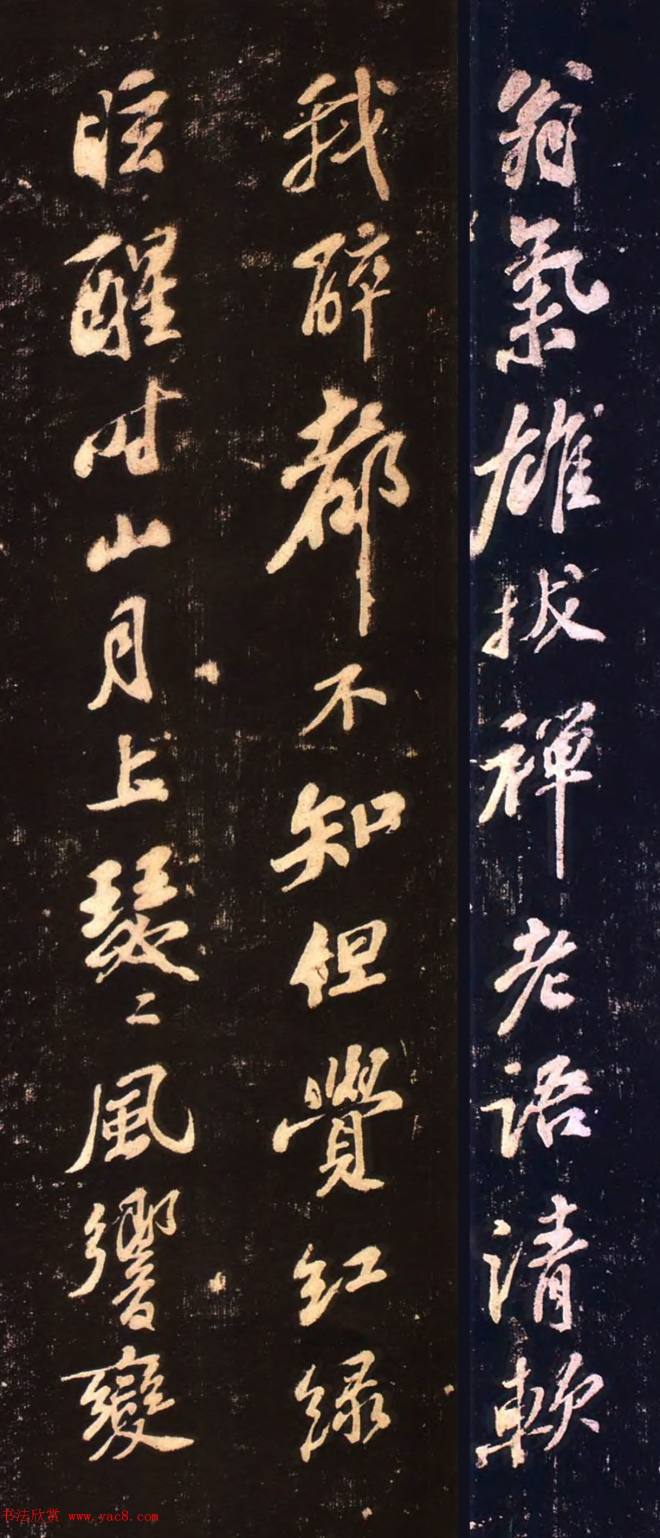 翁氣雄拔禪老語清軟
我醉都不知但覺紅綠
眩醒時山月上瑟〻風響變
书法欣赏 www.yac8.com